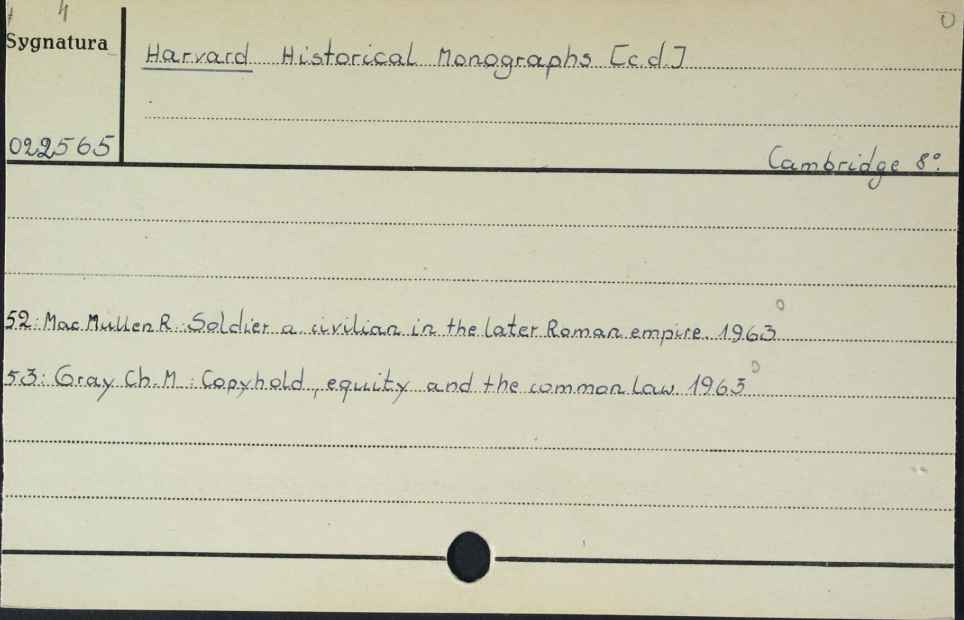 4
0
Sygnatura
Harvard Historical Monographs [c.d.]
022565
Cambridge 8°.
0
52: Mac Mullen R.: Soldier a civilian in the later Roman empire. 1963
0
53: Gray Ch. M.: Copyhold, equity and the common law. 1963